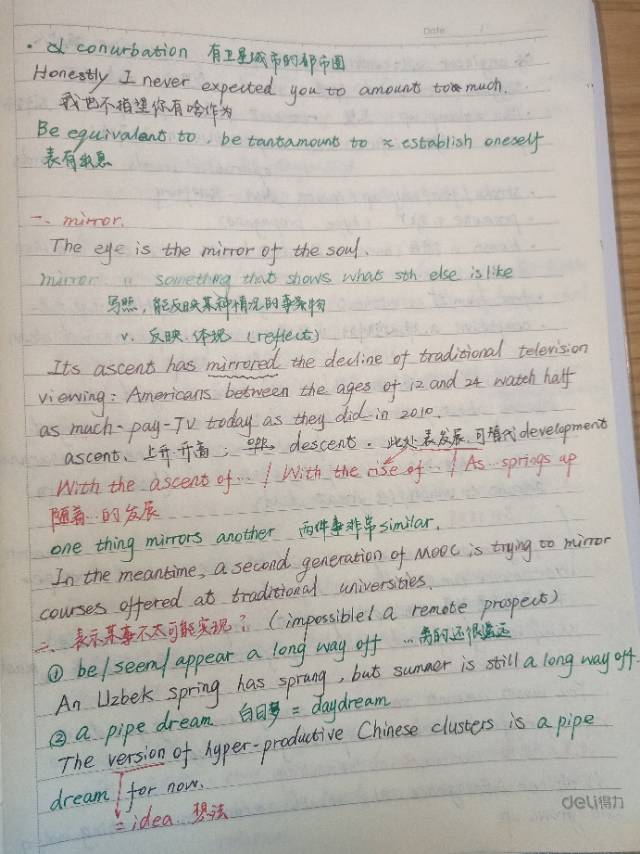 Date /
· a conurbation 有卫星城市的都市圈
Honestly I never expected you to amount to much.
我也不指望你有啥作为
Be equivalent to, be tantamount to ≈ establish oneself
表有出息
一、mirror.
The eye is the mirror of the soul.
mirror n something that shows what sth else is like
写照,能反映某种情况的事物
v. 反映.体现 (reflect)
Its ascent has mirrored the decline of traditional television
viewing: Americans between the ages of 12 and 24 watch half
as much-pay-TV today as they did in 2010.
ascent、上升.升高; descent. 此处表发展.可替代development
With the ascent of… / With the rise of… / As…springs up
随着…的发展
one thing mirrors another 两件事非常similar.
In the meantime, a second generation of MOOC is trying to mirror
courses offered at traditional universities.
二、表示某事不太可能实现? (impossible / a remote prospect)
① be/seem/appear a long way off …离的还很遥远
An Uzbek spring has sprung, but summer is still a long way off.
② a pipe dream 白日梦 = daydream
The version of hyper-productive Chinese clusters is a pipe
dream for now.
= idea 想法
deli得力